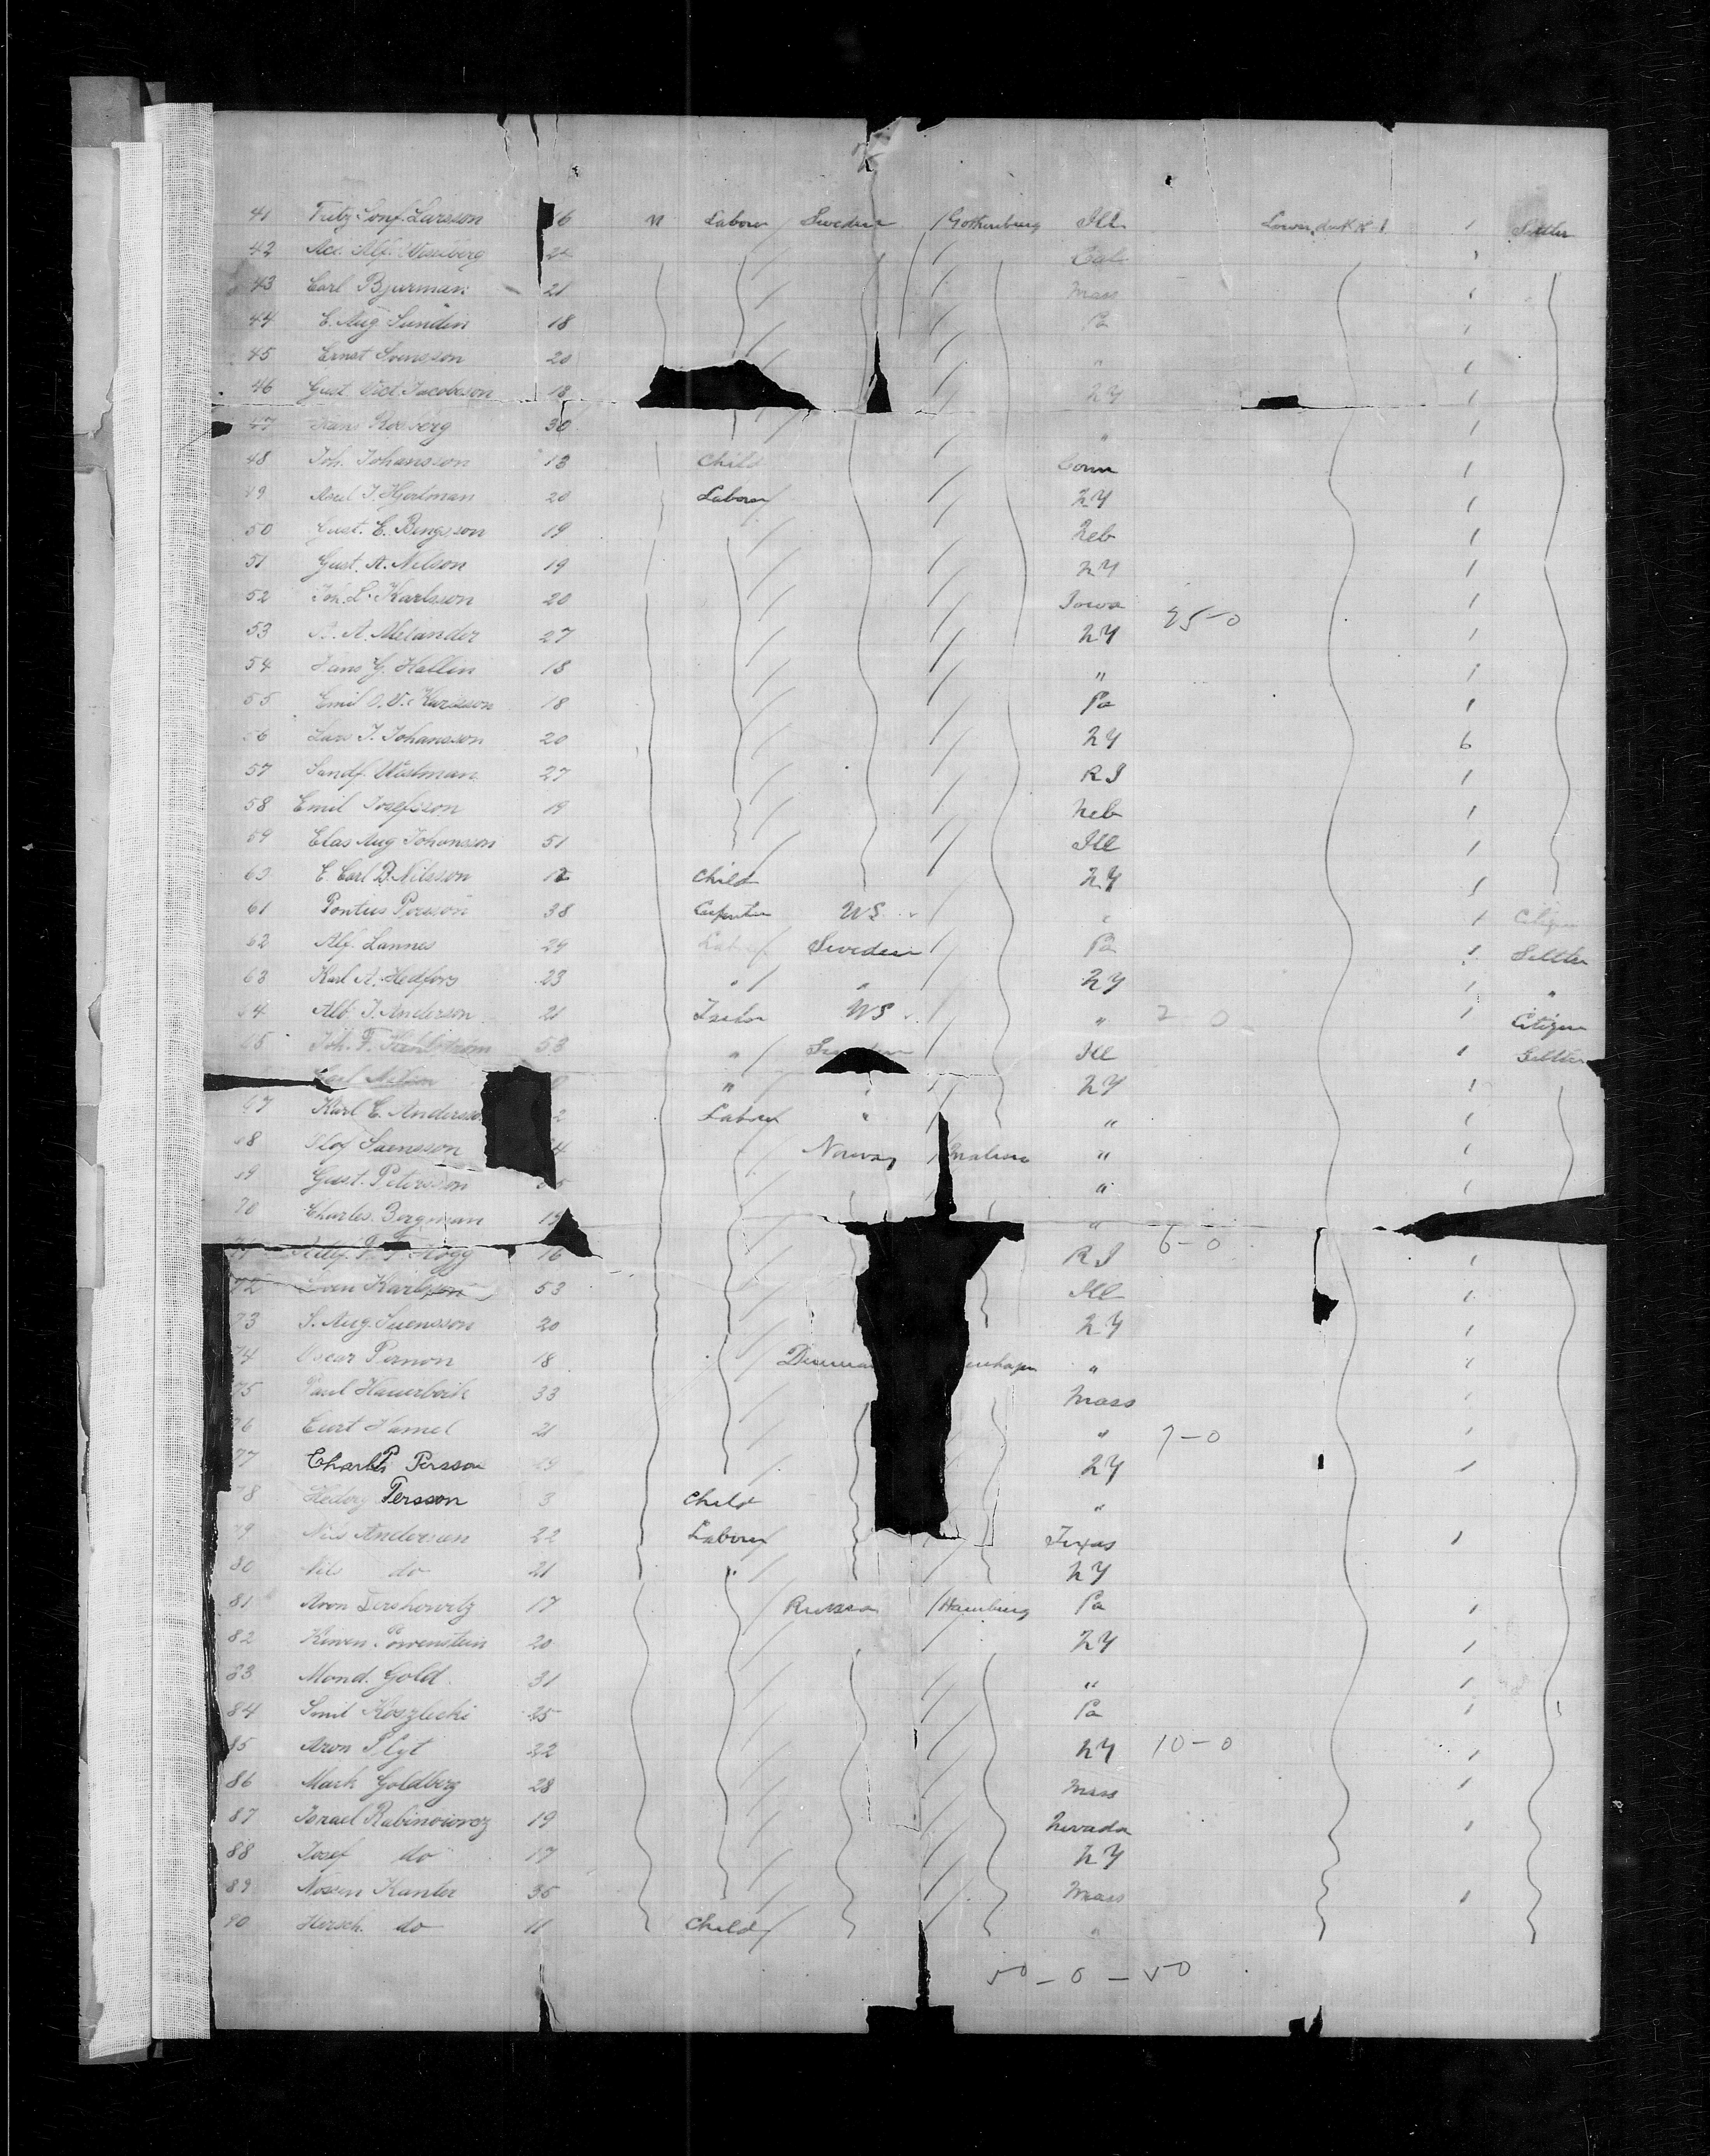 41 Fritz Conf. Larsson 16 M Labour Sweden Gothenburg Ill Lower deck No 1 1 Settler
42 Alf. Cal 1
43 Carl Bjurman 21 Mass 1
44 E. Aug Sundin 18 Pa 1
45 Ernst Svensson 20 " 1
46 Gust Vict Jacobsson 18 NY 1
47 Hans Rosberg 30 " 1
48 Joh. Johansson 13 Child Conn 1
49 Axel J. Hjertman 20 Labour NY 1
50 Gust. E. Bengsson 19 Neb 1
51 Gust. A. Nelson 19 NY 1
52 Joh. L. Karlsson 20 Iowa 1
25-0
53 A. Melander 27 NY 1
54 Hans G. Hallin 18 " 1
55 Emil O. V. Karlsson 18 Pa 1
56 Lars J. Johansson 20 NY 6
57 Sandf. Wistman 27 R I 1
58 Emil Josefsson 19 Neb 1
59 Clas Aug Johansson 51 Ill 1
60 E. Carl B. Nilsson 12 Child NY 1
61 Pontus Persson 38 Carpenter US " 1 Citizen
62 Alf. Lannes 29 Labour Sweden Pa 1 Settler
63 Karl A. Hedfors 23 " " NY 1 "
64 Alb. J. Anderson 21 US " 2-0 1 Citizen
65 Joh. F. 53 " Sweden Ill 1 Settler
Carl " " NY 1
67 Karl E. Anderss 2 Labour " " 1
68 Olof Svensson 4 Norway " 1
69 Gust. Petersson " 1
70 Charles Bergman 19 "
6-0
71 Hogg 16 R I 1
72 Sven Karlsson 53 Ill 1
73 S. Aug. Suensson 20 NY 1
74 Oscar Pernon 18 Denma enhagen " 1
75 Paul 33 Mass 1
76 Curt Hamel 21 " 7-0 1
77 Charles Persson NY 1
78 Hedvig Persson 3 Child "
79 Nils Anderson 22 Labour Texas 1
80 Nils do 21 " NY
81 Aron Dershowitz 17 Russia Hamburg Pa 1
82 Lowenstein 20 NY 1
83 Mond. Gold 31 " 1
84 Koszlecki 25 Pa 1
85 Aron Plyt 22 NY 10-0 1
86 Mark Goldberg 28 Mass 1
87 Israel Rabinowicz 19 Nevada 1
88 Josef do 17 NY
89 Nossen Kanter 35 Mass 1
90 Hersch do 11 Child "
50-0-50